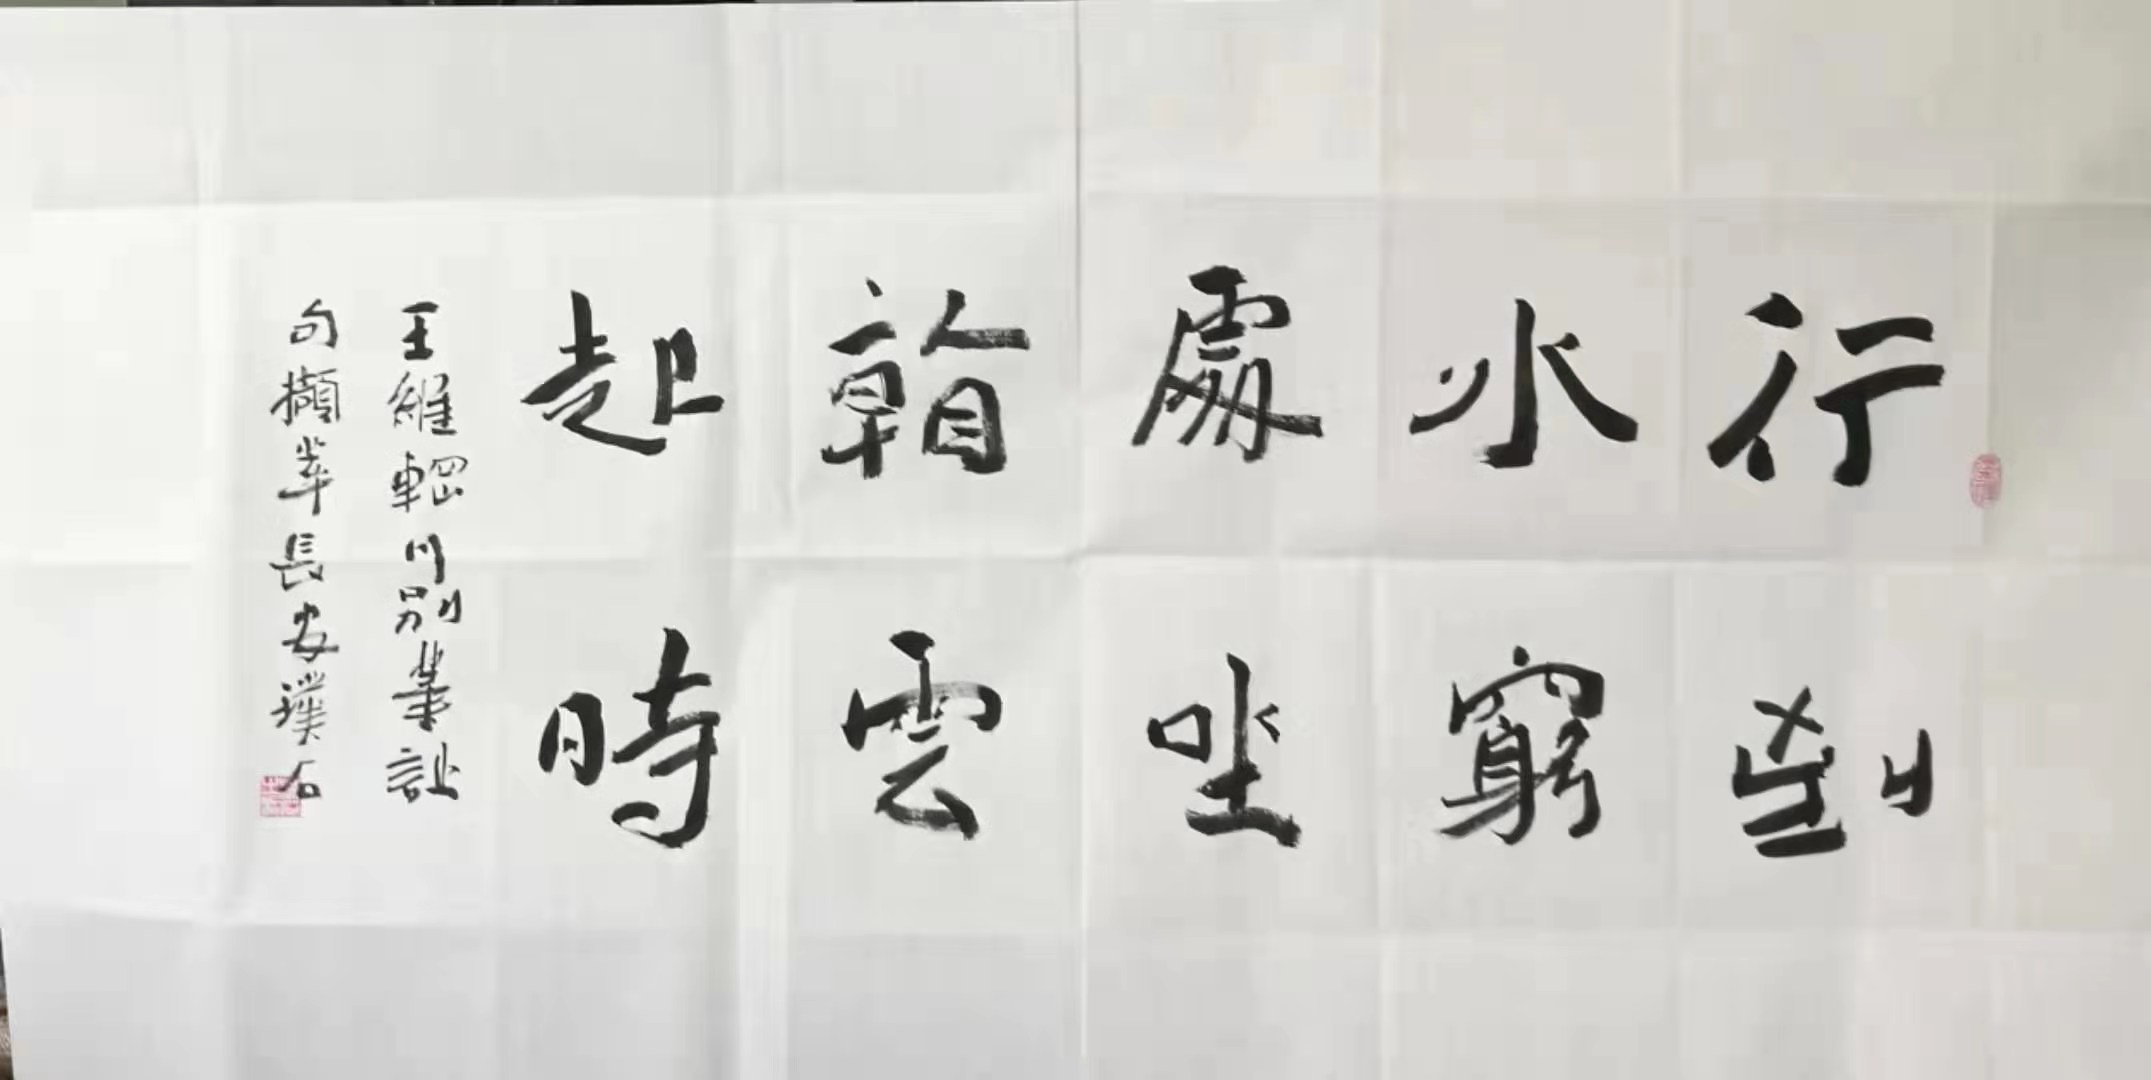 行到
水窮
處坐
看雲
起時
王維輞川別業詩
句擷萃長安璞石